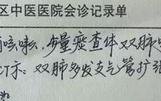 区中医医院会诊记录单
咳嗽,少量痰查体双肺
CT示:双肺多发支气管扩张